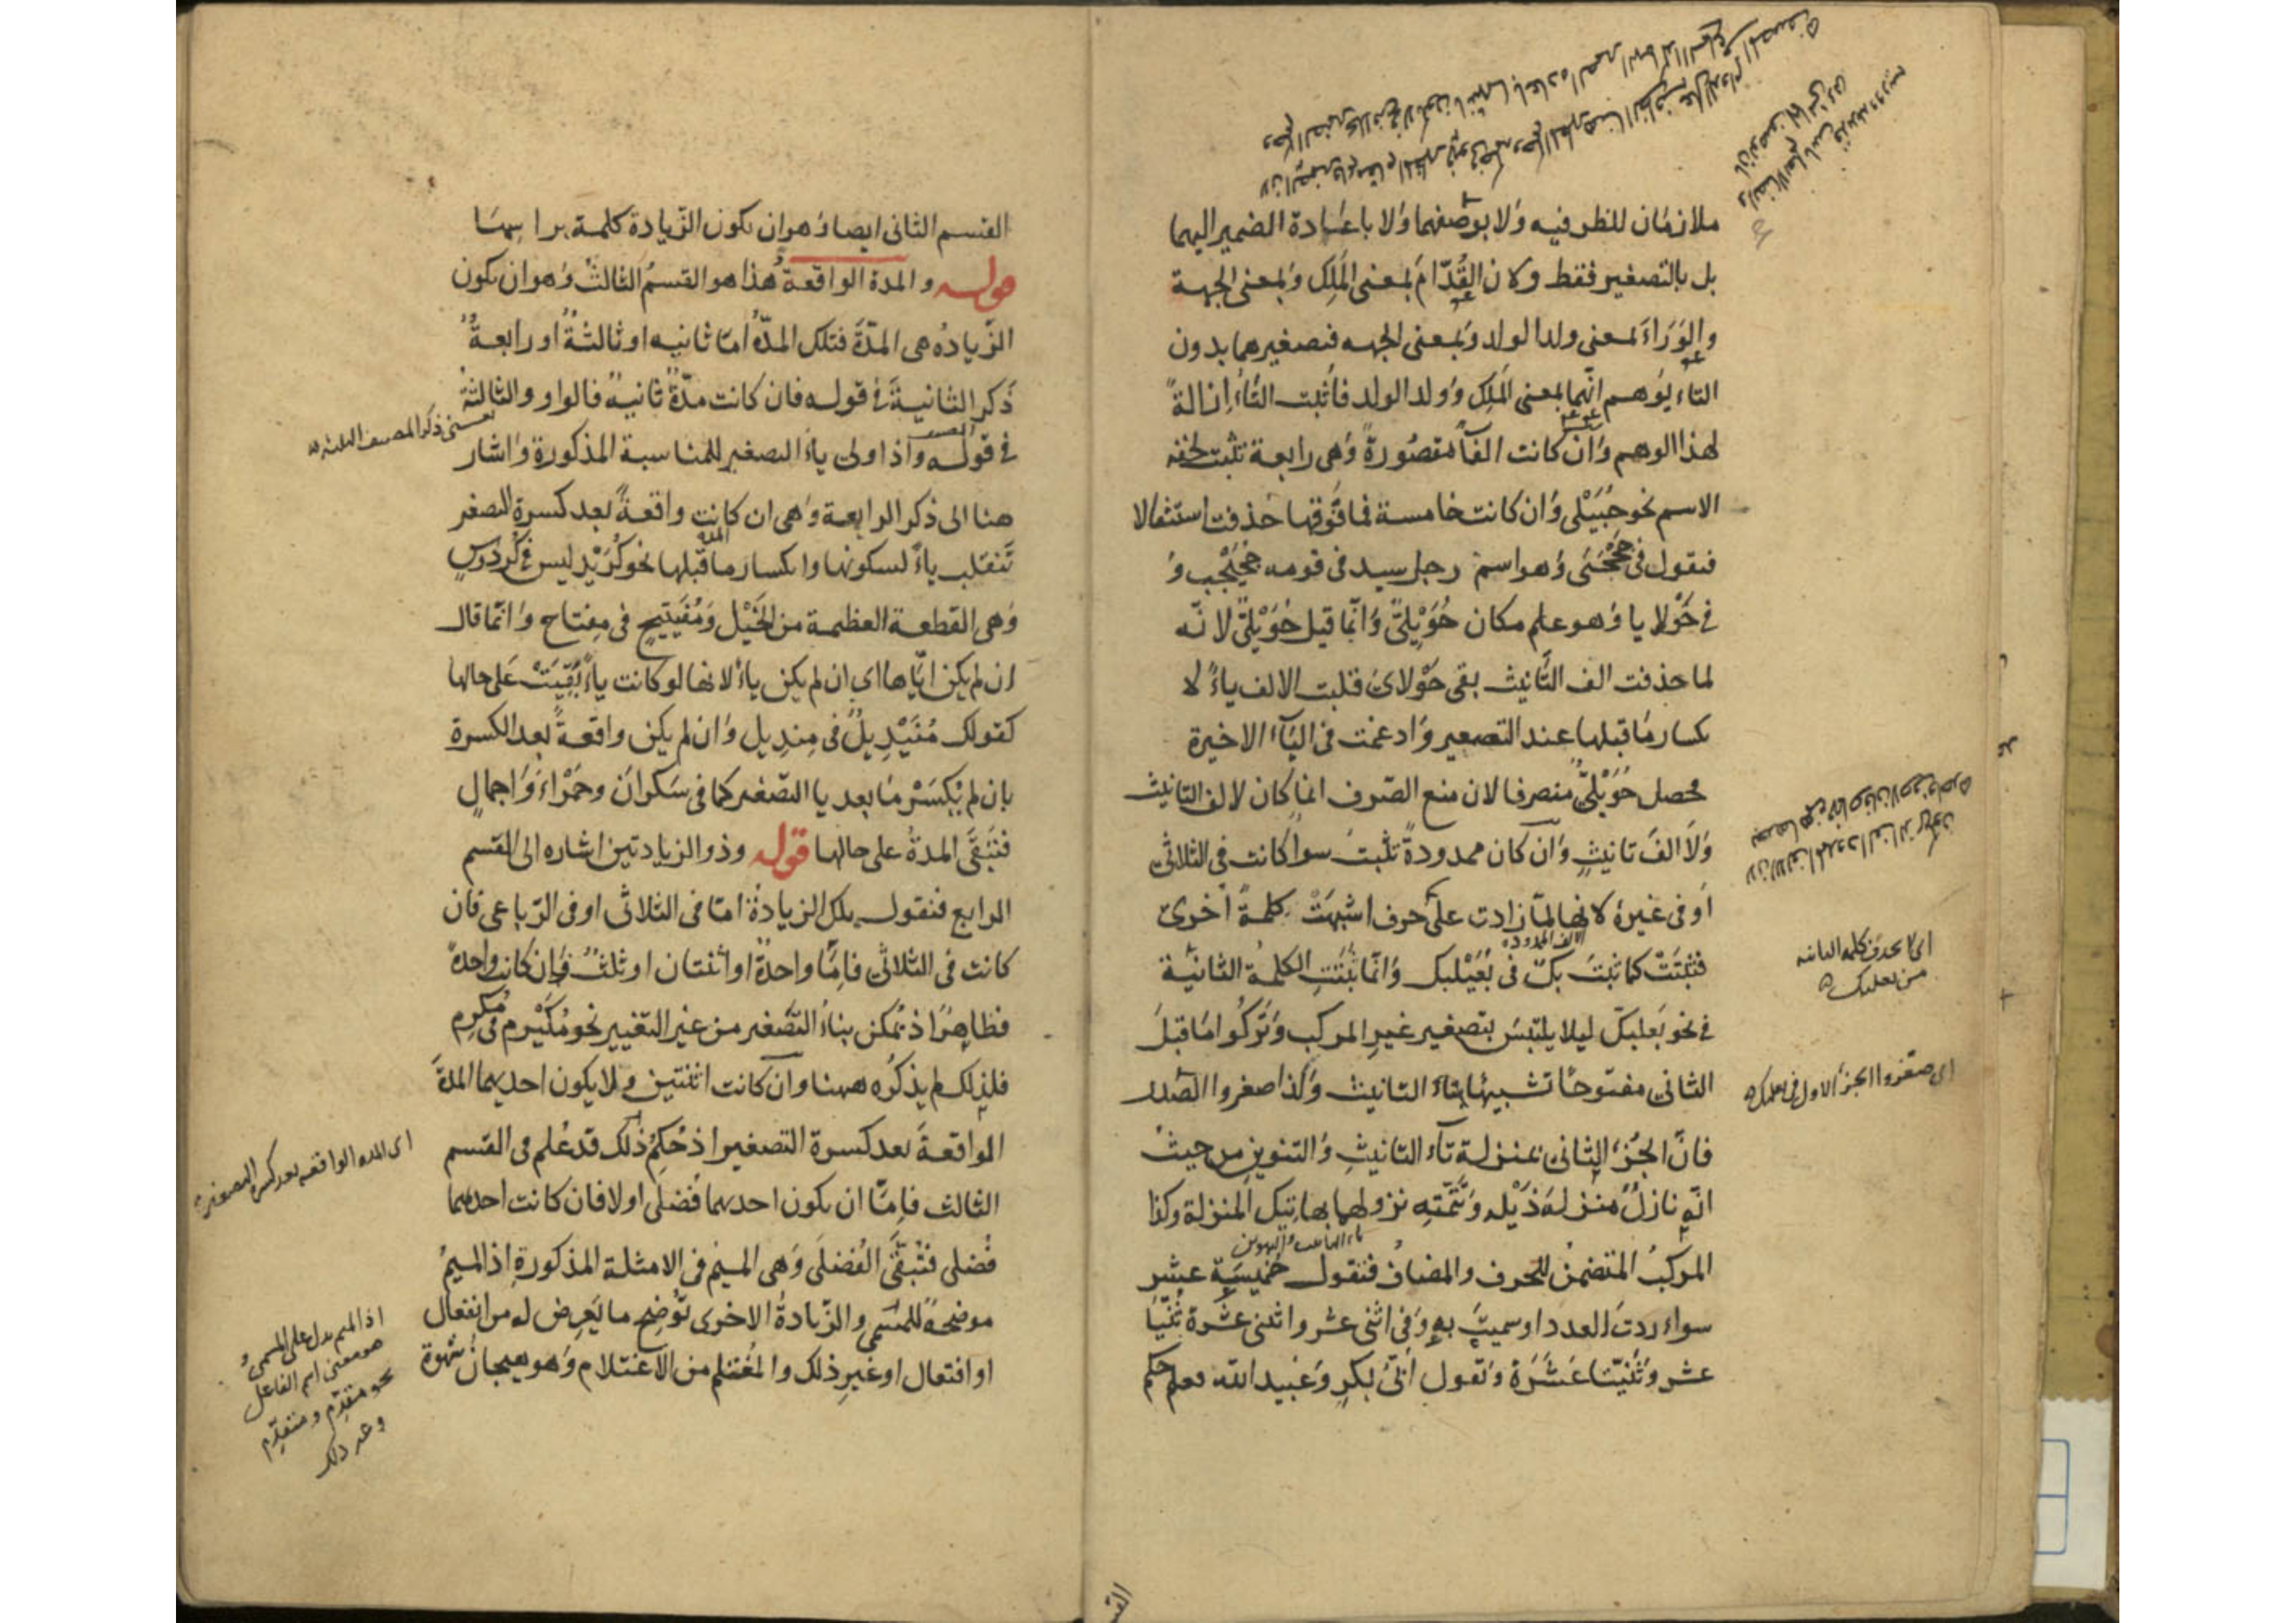 ملازمان للظرفيه ولا بوصفهما ولا باعادة الضمير اليهما
بل بالتصغير فقط ولان القُدّام بمعنى المَلِك وبمعنى الجهة
والوَرَاءَ بمعنى ولد الولد وبمعنى الجهه فتصغيرهما بدون
التاء يوهم انّهما بمعنى المَلِك وولد الولد فاُثبت التاء اِزالةً
لهذا الوهم وان كانت الفاً مقصورةً وهى رابعة تثبت لخفه
الاسم نحو حُبَيْلى وان كانت خامسة فما فوقها حذفت استثقالا
فنقول فى جَحْجَبَى وهو اسم رجل سيد فى قومه جُحَيْجِب و
فى حَوْلايا وهو علم مكان حُوَيْلِىّ وانّما قيل حُوَيْلىّ لانّه
لما حذفت الف التأنيث بقى حَوْلاى قلبت الالف ياءً لا
نكسار ما قبلها عند التصغير وادغمت فى الياء الاخيرة
فحصل حُوَيْلىّ منصرفا لان منع الصرف انما كان لالف التانيث
ولا الفَ تانيثٍ وان كان ممدودةً تثبت سواء كانت فى الثلاثىّ
أو فى غيره لانها لمّا زادت على حرف اشبهَتْ كلمةً اخرى
فثبتَتْ كما ثبتَ بكّ فى بُعَيْلبك وانّما ثبتت الكلمة الثانية
الالف الممدودة
فى نحو بَعلبكّ ليلا يلتبسَ بتصغير غير المركب وتركوا ما قبلَ
الثانى مفتوحًا تشبيهًا بتاء التانيث وكذا صغروا الصّدر
فانّ الجُزء الثانى بمنزلة تاء التانيثِ والتنوين من حيث
انّه نازلٌ منزلةَ ذَيْله وتتمّتِه نزولهما بهاتيك المنزلة وكذا
المركبُ المتضمنُ للحرف والمضافُ فتقول خميسَةَ عشر
سواء ردتَ العدد او سميتَ به وفى اثنى عشر واثنتى عشرة ثُنَيّا
عشر وثُنَيّتا عَشَرَة وتقول اُبَىّ بكرٍ وعُبيد الله فعلم حكم
اى لا يحذف كلمه الثانيه
من بعلبك
اى صغّروا الجزء الاول فى بعلبك
القسم الثانى ايضا وهو ان يكون الزّيادة كلمة براسها
قوله والمدة الواقعة هذا هو القسم الثالث وهو ان يكون
الزّيادة هى المدّة فتلك المدّة امّا ثانيه او ثالثةٌ او رابعةٌ
ذكر الثانيةَ فى قوله فان كانت مدّةً ثانيةً فالواو والثالثة
فى قوله واذا ولى ياءَ التصغير للمناسبة المذكورة واشار
هنا الى ذكر الرابعة وهى ان كانت واقعةً بعد كسرة التصغير
المدة
تنقلب ياءً لسكونها وانكسار ما قبلها نحو كُرَيْدِيس فى كُردُوسٍ
وهى القطعة العظيمة من الخَيْل ومُفَيتيحٍ فى مِفتاح وانّما قال
ان لم يكن ايّاها اى ان لم يكن ياءً لانها لو كانت ياءً بُقِيَتْ على حالها
كقولك مُنَيْدِيلٌ فى مِندِيل وان لم يكن واقعةً بعد الكسرة
بان لم يُكسَرْ ما بعد يا التصغير كما فى سَكرانَ وحَمْراءَ واَجمالٍ
فتَبقَى المدةُ على حالها قوله وذو الزيادتين اشاره الى القسم
الرابع فنقول تلك الزيادة امّا فى الثلاثى او فى الرّباعى فان
كانت فى الثلاثىّ فامّا واحدةٌ او اثنتان او ثلثٌ فان كانت واحدةً
فظاهرٌ اذ يُمكن بناءُ التصغير من غير التغيير نحو مُكَيْرِم فى مُكرِم
فلذلك لم يذكُره ههنا وان كانت اثنتين ولا يكون احديهما المدةَ
الواقعةَ بعد كسرة التصغير اذ حُكمُ ذلك قد عُلم فى القسم
الثالث فامّا ان يكون احديهما فُضلى اولا فان كانت احديهما
فُضلى فتُبقَّى الفُضلَى وهى الميم فى الامثلة المذكورةِ اذ الميمُ
موضحةٌ للمسمى والزيادةُ الاخرى توضح ما يَعرِض له من انفعال
او افتعال او غيرِ ذلك والمُغتلِم من الاغتلام وهو هيجان شهوة
اى المده الواقعه بعد كسره التصغير
اذ الميم يدل على المسمى و
هو معنى اسم الفاعل
نحو مقدّم ومتقدّم
وغير ذلك